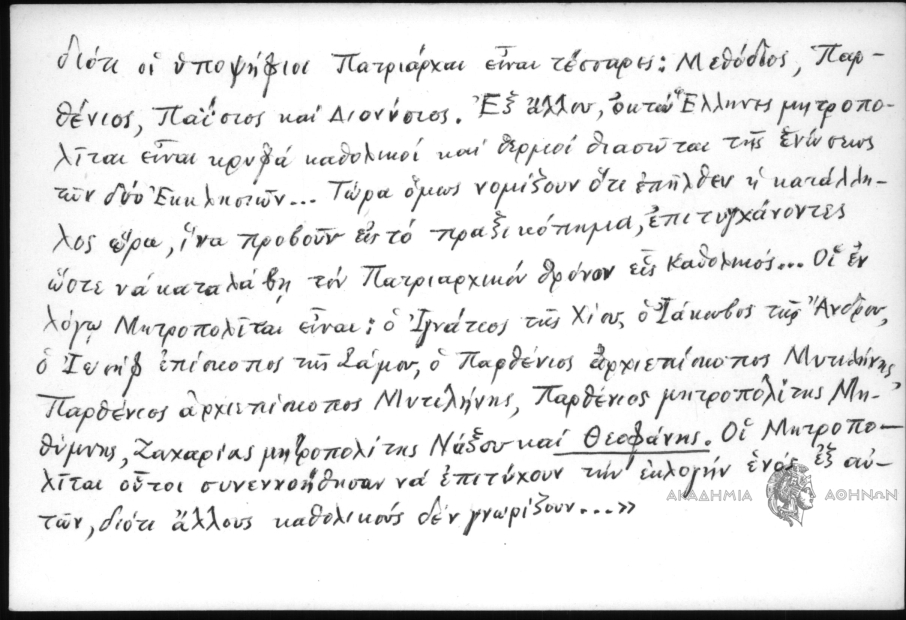 διότι οἱ ὑποψήφιοι Πατριάρχαι εἶναι τέσσαρες: Μεθόδιος, Παρ-
θένιος, Παΐσιος καί Διονύσιος. Ἐξ ἄλλου, ὀκτώ Ἕλληνες μητροπο-
λῖται εἶναι κρυφά καθολικοί καί θερμοί θιασῶται τῆς ἑνώσεως
τῶν δύο Ἐκκλησιῶν... Τώρα ὅμως νομίζουν ὅτι ἐπῆλθεν ἡ κατάλλη-
λος ὥρα, ἵνα προβοῦν εἰς τό πραξικόπημα, ἐπιτυγχάνοντες
ὥστε νά καταλάβῃ τόν Πατριαρχικόν θρόνον εἷς καθολικός... Οἱ ἐν
λόγῳ Μητροπολῖται εἶναι: ὁ Ἰγνάτιος τῆς Χίου, ὁ Ἰάκωβος τῆς Ἄνδρου,
ὁ Ἰωσήφ ἐπίσκοπος τῆς Σάμου, ὁ Παρθένιος ἀρχιεπίσκοπος Μυτιλήνης,
Παρθένιος ἀρχιεπίσκοπος Μυτιλήνης, Παρθένιος μητροπολίτης Μη-
θύμνης, Ζαχαρίας μητροπολίτης Νάξου καί Θεοφάνης. Οἱ Μητροπο-
λῖται οὗτοι συνεννοήθησαν νά ἐπιτύχουν τήν ἐκλογήν ἑνός ἐξ αὐ-
τῶν, διότι ἄλλους καθολικούς δέν γνωρίζουν...»
ΑΚΑΔΗΜΙΑ ΑΘΗΝΩΝ